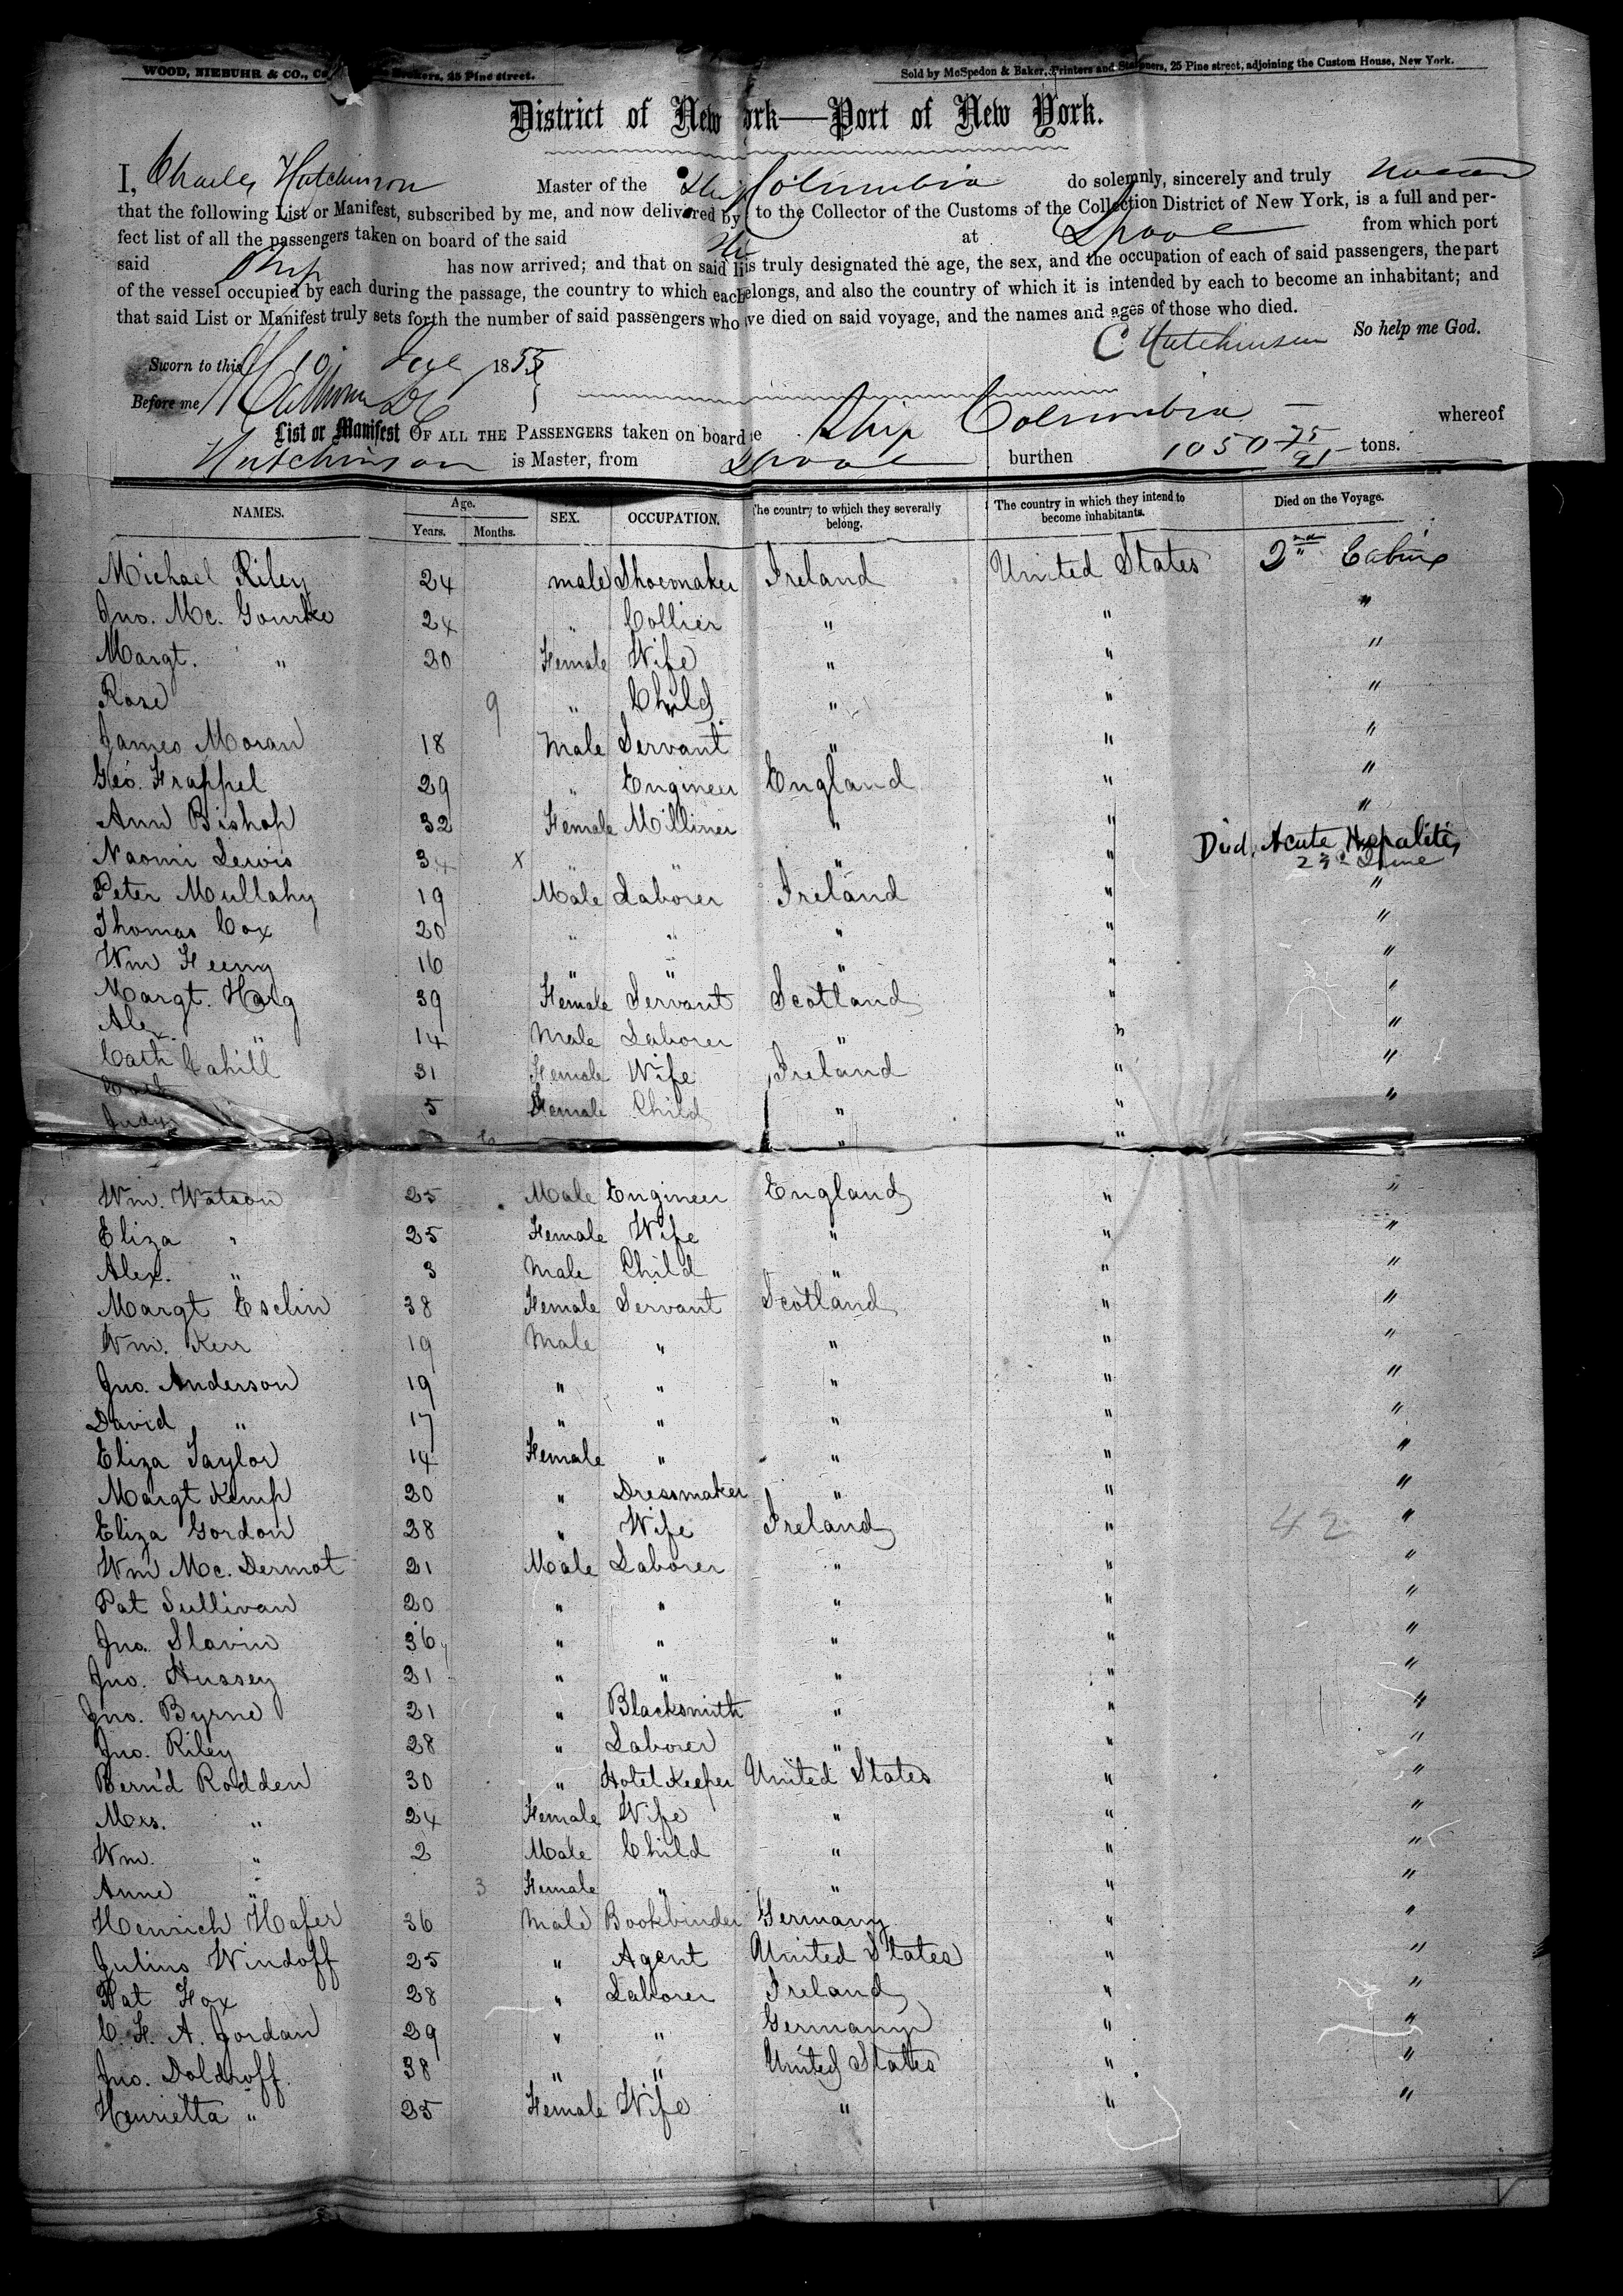 WOOD, NIEBUHR & CO., Brokers, 25 Pine street.
Sold by McSpedon & Baker, Printers and Stationers, 25 Pine street, adjoining the Custom House, New York.
District of New York—Port of New York.
I, Charles Hutchinson Master of the Ship Columbia do solemnly, sincerely and truly
that the following List or Manifest, subscribed by me, and now delivered by to the Collector of the Customs of the Collection District of New York, is a full and per-
fect list of all the passengers taken on board of the said Ship at Lpool from which port
said Ship has now arrived; and that on said list is truly designated the age, the sex, and the occupation of each of said passengers, the part
of the vessel occupied by each during the passage, the country to which each belongs, and also the country of which it is intended by each to become an inhabitant; and
that said List or Manifest truly sets forth the number of said passengers who have died on said voyage, and the names and ages of those who died.
C Hutchinson So help me God.
Sworn to this 10 1855
Before me
List or Manifest OF ALL THE PASSENGERS taken on board the Ship Columbia — whereof
Hutchinson is Master, from Lpool burthen 1050 75/95 tons.
NAMES. Age. Years. Months. SEX. OCCUPATION. The country to which they severally belong. The country in which they intend to become inhabitants. Died on the Voyage.
Michael Riley 24 male Shoemaker Ireland United States 2nd Cabin
Jno. Mc. Gourke 24 " Collier " " "
Margt. " 20 Female Wife " " "
Rose 9 " Child " " "
James Moran 18 Male Servant " " "
Geo. Frappel 29 " Engineer England " "
Ann Bishop 32 Female Milliner " " "
Naomi Lewis 34 x " " " " Died, Acute Hepatitis, 23d June
Peter Mullahy 19 Male Laborer Ireland " "
Thomas Cox 20 " " " " "
Wm Feeny 16 " " " " "
Margt. Haig 39 Female Servant Scotland " "
Alex. " 14 Male Laborer " " "
Cath Cahill 31 Female Wife Ireland " "
Cath 5 Female Child " " "
Judy " "
Wm. Watson 25 Male Engineer England " "
Eliza " 25 Female Wife " " "
Alex. " 3 Male Child " " "
Margt Esclin 38 Female Servant Scotland " "
Wm. Kerr 19 Male " " " "
Jno. Anderson 19 " " " " "
David " 17 " " " " "
Eliza Taylor 14 Female " " " "
Margt Kemp 20 " Dressmaker " " "
Eliza Gordon 28 " Wife Ireland " 42 "
Wm Mc. Dermot 21 Male Laborer " " "
Pat Sullivan 20 " " " " "
Jno. Slavin 36 " " " " "
Jno. Hussey 21 " " " " "
Jno. Byrne 21 " Blacksmith " " "
Jno. Riley 28 " Laborer " " "
Bern'd Rodden 30 " Hotel Keeper United States " "
Mrs. " 24 Female Wife " " "
Wm. " 2 Male Child " " "
Anne " 3 Female " " " "
Henrich Hafer 36 Male Bookbinder Germany " "
Julius Windoff 25 " Agent United States " "
Pat Fox 28 " Laborer Ireland " "
C. F. A. Jordan 29 " " Germany " "
Jno. Doldhoff. 38 " " United States " "
Henrietta " 25 Female Wife " " "